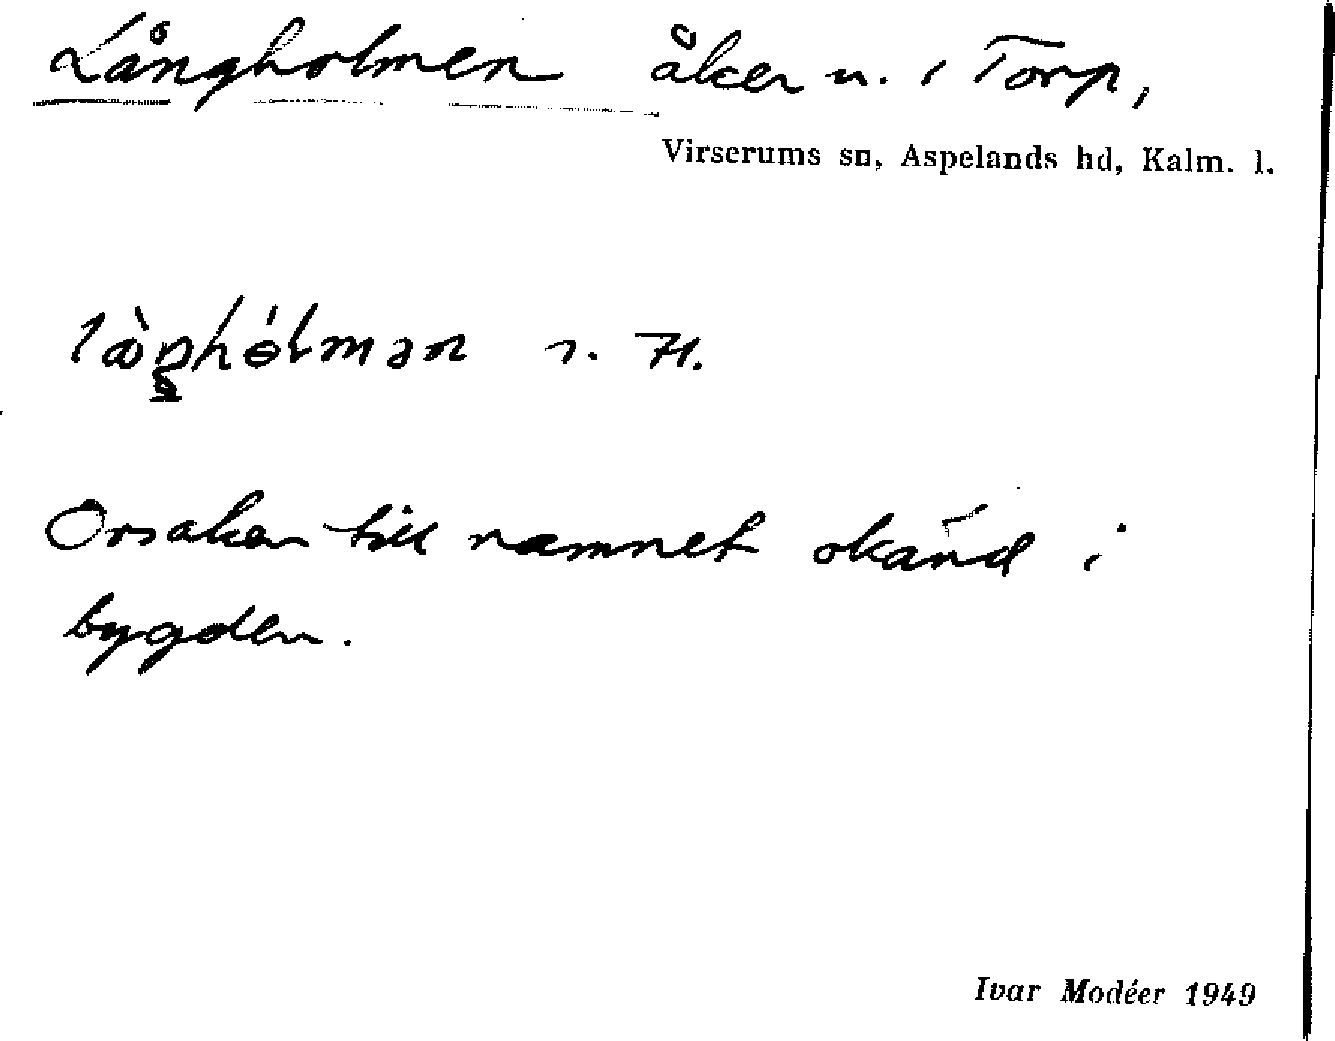 Långholmen åker n. i Torp,
Virserums sn, Aspelands hd, Kalm. l.
Orsaken till namnet okänd i
bygden.
Ivar Modéer 1949